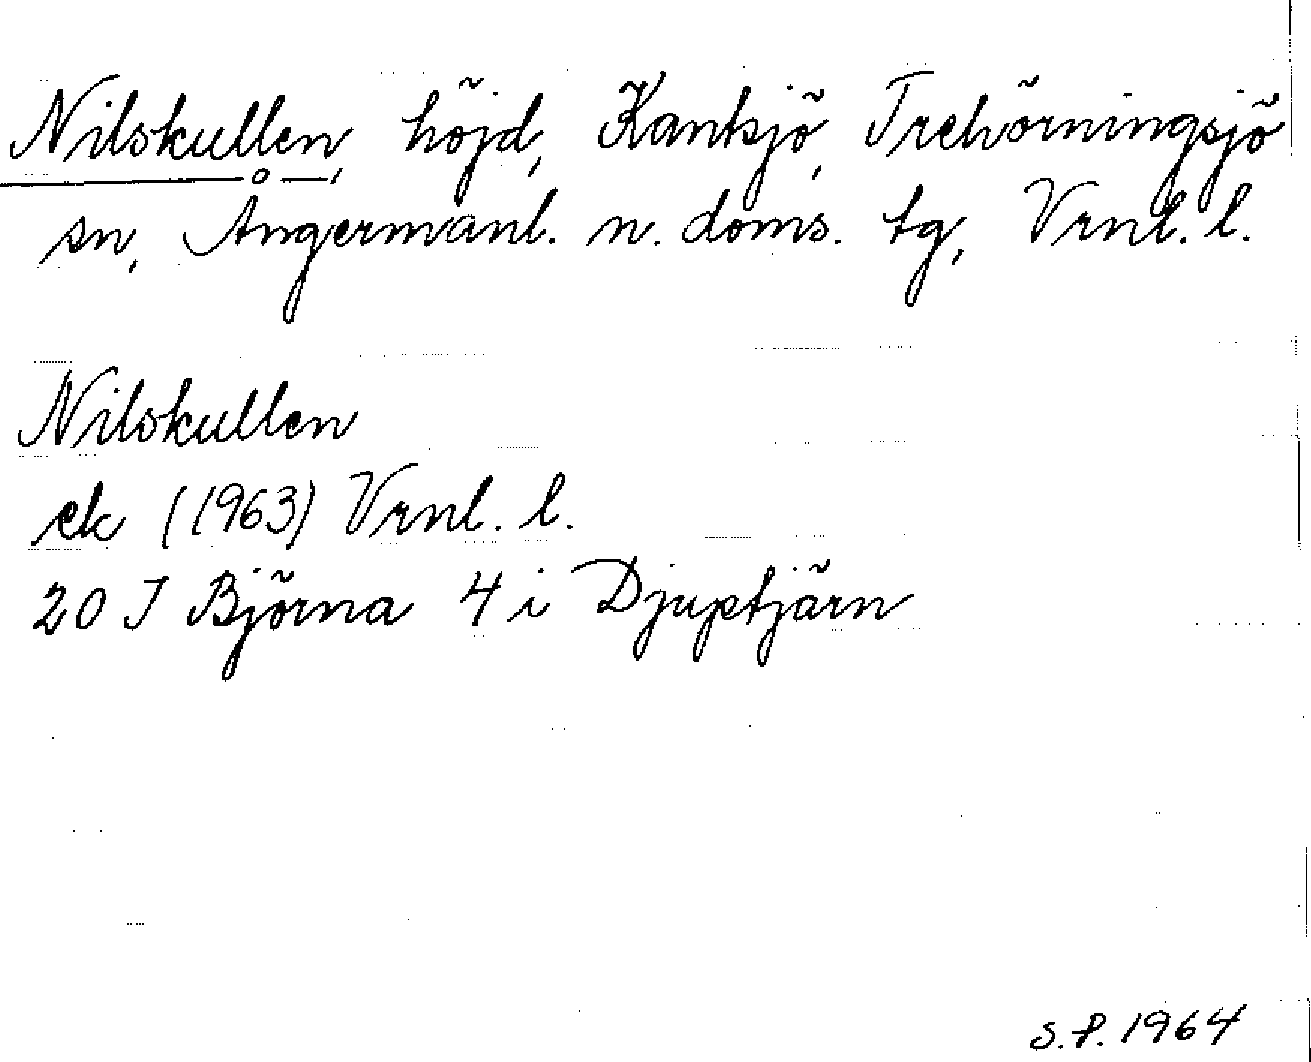 Nilskullen, höjd, Kanksjö, Trehörningsjö
sn, Ångermanl. n. doms. tg, Vrnl. l.
Nilskullen
ek (1963) Vrnl. l.
20 J Björna 4 i Djuptjärn
S.P. 1964